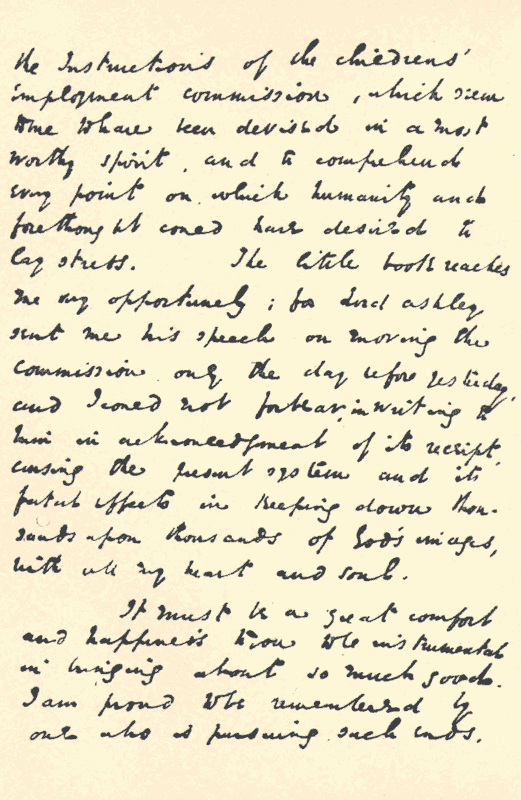 the Instructions of the childrens'
employment commission, which seem
to me to have been devised in a most
worthy spirit, and to comprehend
every point on which humanity and
forethought could have desired to
lay stress. The little book reaches
me very opportunely; for Lord Ashley
sent me his speech on moving the
commission only the day before yesterday,
and I could not forbear, in writing to
him in acknowledgment of its receipt,
cursing the present system and its
fatal effects in keeping down thou-
sands upon thousands of God's images,
with all my heart and soul.
It must be a great comfort
and happiness to you to be instrumental
in bringing about so much good.
I am proud to be remembered by
one who is pursuing such ends.